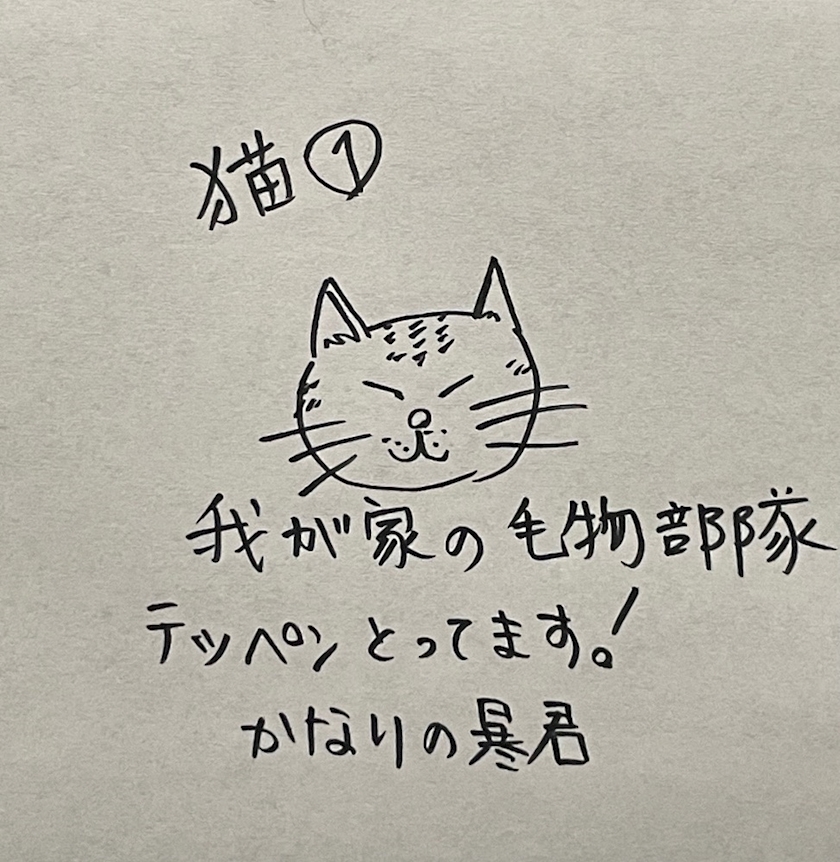 猫①
我が家の毛物部隊
テッペンとってます!
かなりの暴君